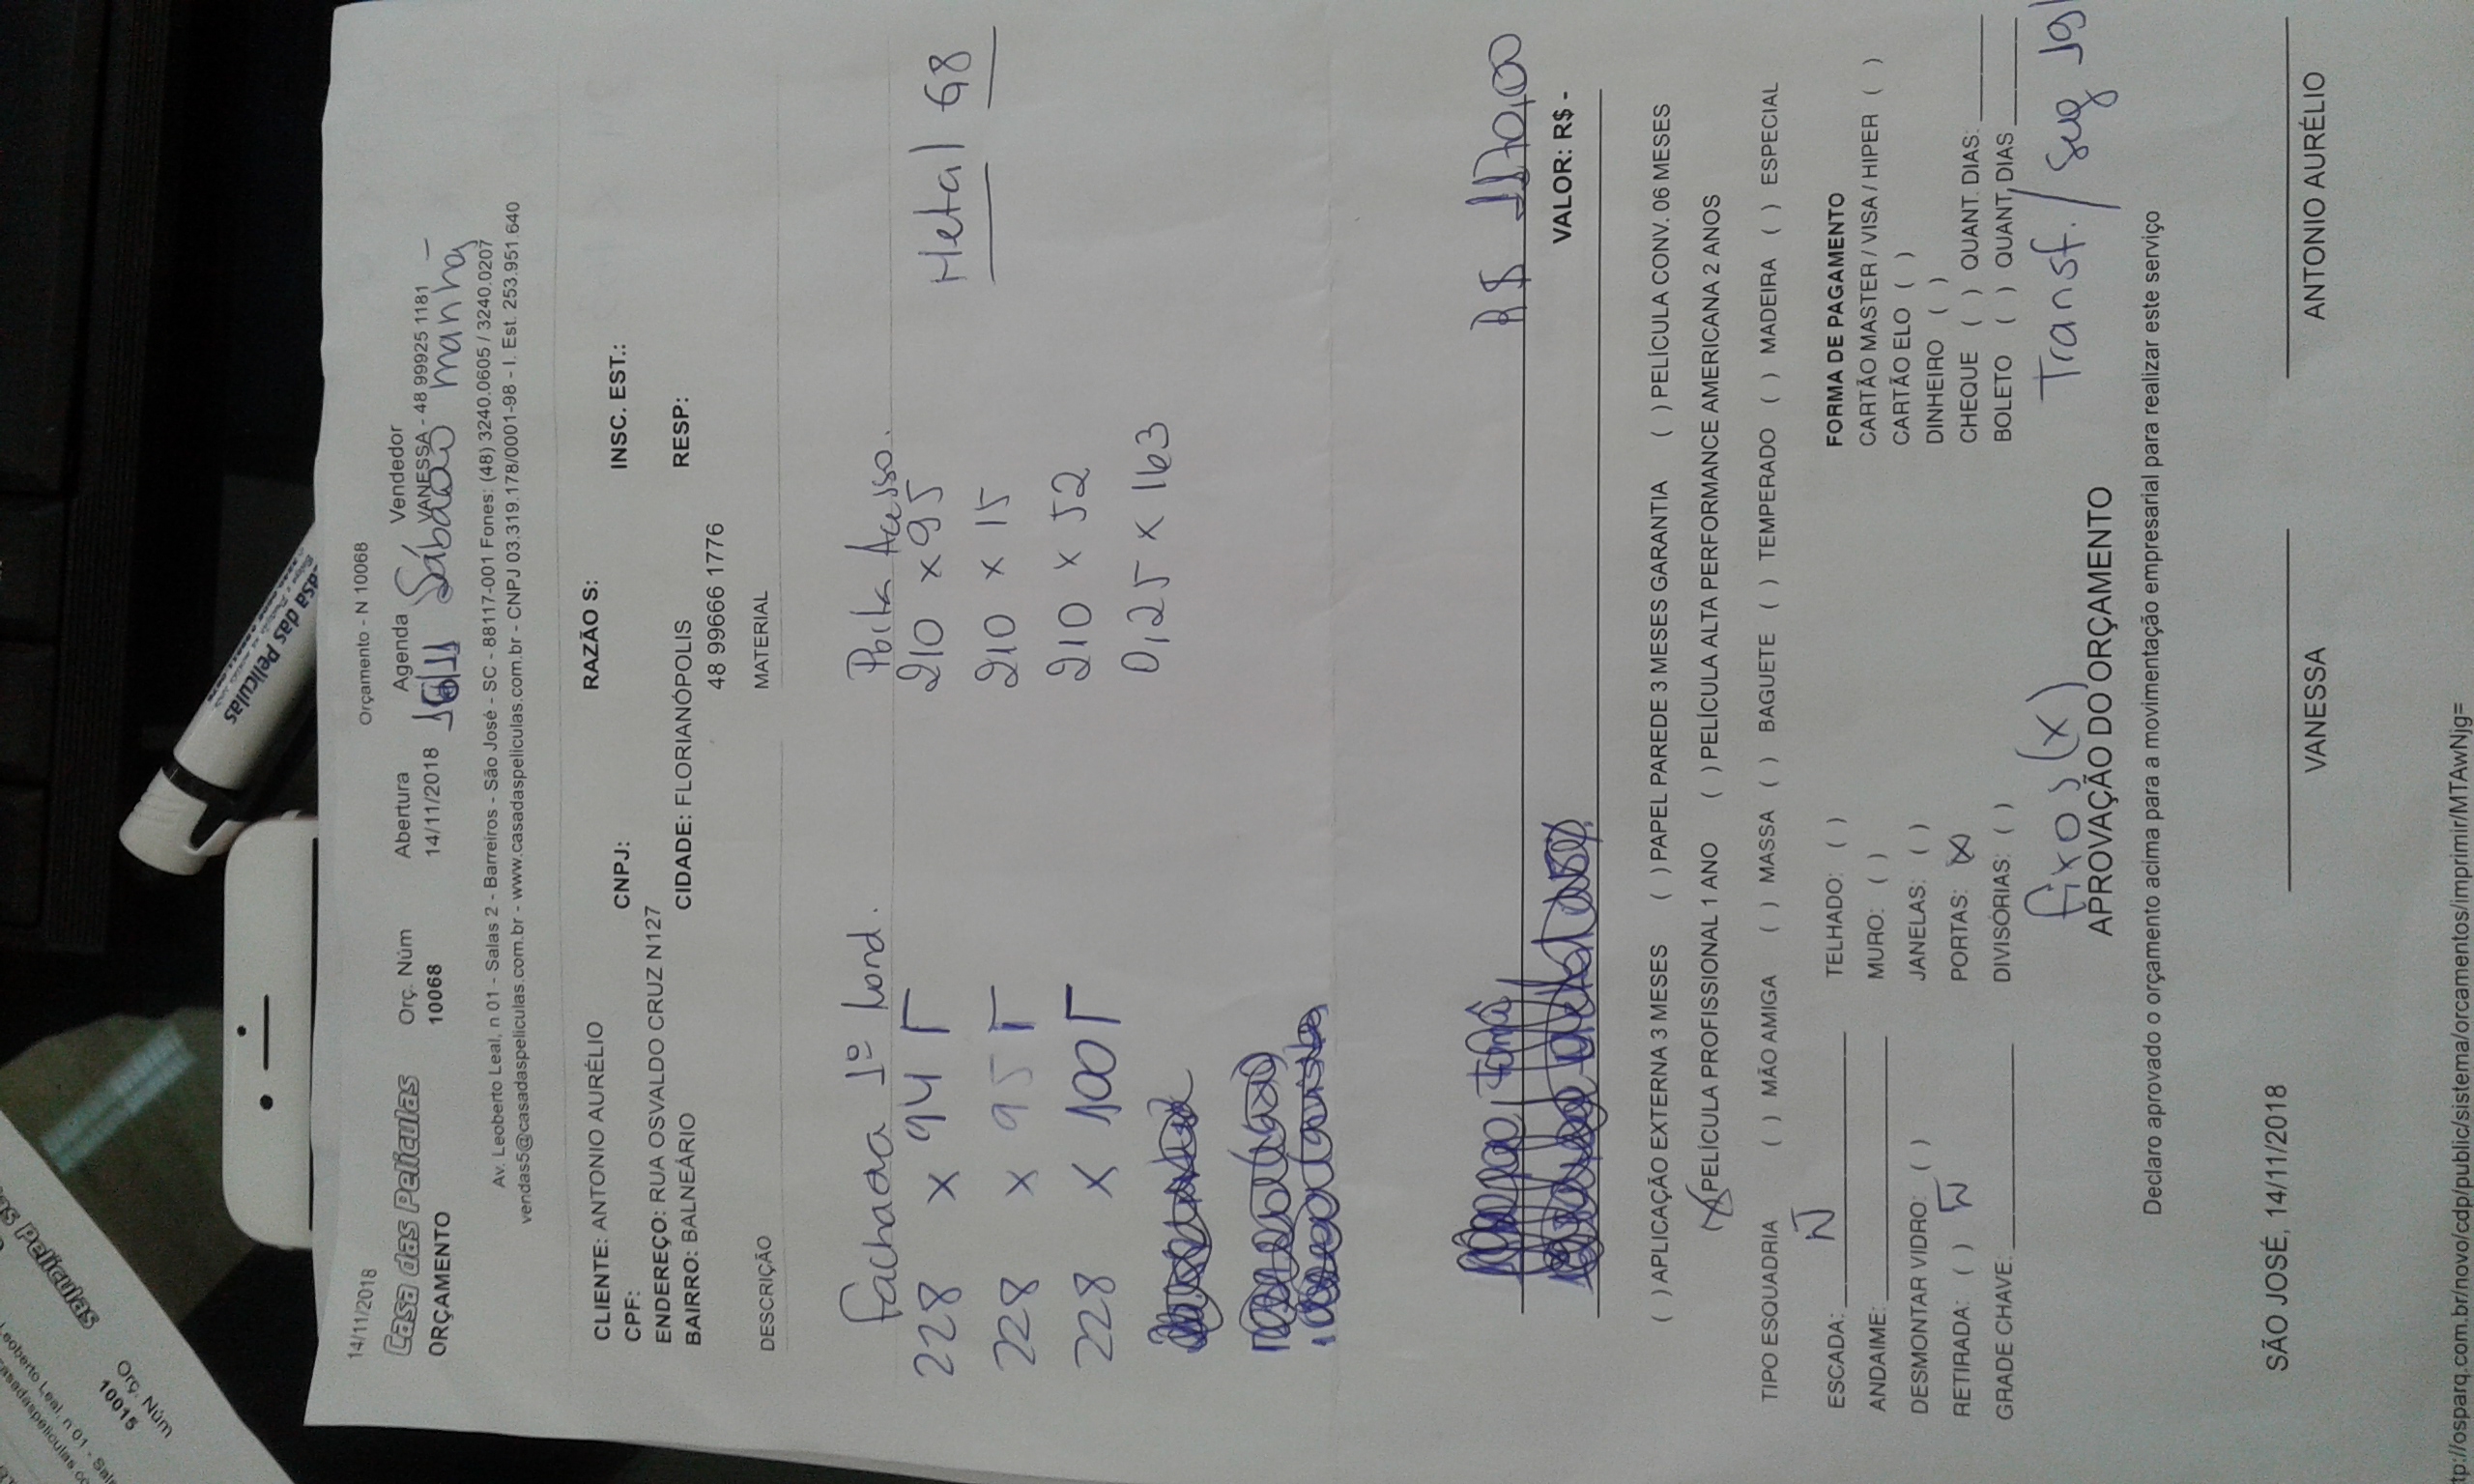 14/11/2018 Orçamento - N 10068
Casa das Películas Orç. Núm Abertura Agenda Vendedor
ORÇAMENTO 10068 14/11/2018 Sábado manhã VANESSA - 48 99925 1181
Av. Leoberto Leal, n 01 - Salas 2 - Barreiros - São José - SC - 88117-001 Fones: (48) 3240.0605 / 3240.0207
vendas5@casadaspeliculas.com.br - www.casadaspeliculas.com.br - CNPJ 03.319.178/0001-98 - I. Est. 253.951.640
CLIENTE: ANTONIO AURÉLIO RAZÃO S:
CPF: CNPJ: INSC. EST.:
ENDEREÇO: RUA OSVALDO CRUZ N127
BAIRRO: BALNEÁRIO CIDADE: FLORIANÓPOLIS RESP:
48 99666 1776
DESCRIÇÃO MATERIAL
Fachada 1º Porta Acesso.
228 x 94 210 x 95 Metal G8
228 x 95 210 x 15
228 x 100 210 x 52
0,25 x 163
R$
VALOR: R$ -
( ) APLICAÇÃO EXTERNA 3 MESES ( ) PAPEL PAREDE 3 MESES GARANTIA ( ) PELÍCULA CONV. 06 MESES
(X) PELÍCULA PROFISSIONAL 1 ANO ( ) PELÍCULA ALTA PERFORMANCE AMERICANA 2 ANOS
TIPO ESQUADRIA ( ) MÃO AMIGA ( ) MASSA ( ) BAGUETE ( ) TEMPERADO ( ) MADEIRA ( ) ESPECIAL
ESCADA: N TELHADO: ( ) FORMA DE PAGAMENTO
ANDAIME: MURO: ( ) CARTÃO MASTER / VISA / HIPER ( )
CARTÃO ELO ( )
DESMONTAR VIDRO: ( ) JANELAS: ( ) DINHEIRO ( )
RETIRADA: ( ) N PORTAS: (X) CHEQUE ( ) QUANT. DIAS:
GRADE CHAVE: DIVISÓRIAS: ( ) BOLETO ( ) QUANT, DIAS
fixos (x) Transf. / seg 19/
APROVAÇÃO DO ORÇAMENTO
Declaro aprovado o orçamento acima para a movimentação empresarial para realizar este serviço
SÃO JOSÉ, 14/11/2018 VANESSA ANTONIO AURÉLIO
tp://osparq.com.br/novo/cdp/public/sistema/orcamentos/imprimir/MTAwNjg=
asa das Películas
as Películas
Orç. Núm
10015